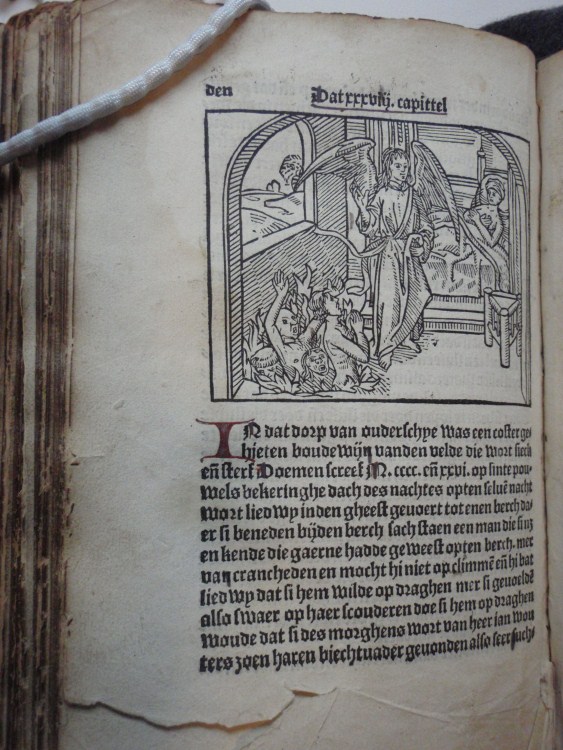 den
Dat xxxviij. capittel
IN dat dorp van ouderschye was een coster ge-
hieten boudewijn vanden velde die wort sieck
eñ sterf Doemen screef M. cccc. eñ xxvi. op sinte pou-
wels bekeringhe dach des nachtes opten seluē nacht
wort liedwy inden gheest geuoert tot enen berch da-
er si beneden bijden berch sach staen een man die si nz
en kende die gaerne hadde geweest opten berch. mer
van crancheden en mocht hi niet op climmē eñ hi bat
liedwy dat si hem wilde op draghen mer si geuoeldē
also swaer op haer scouderen doe si hem op draghen
woude dat si des morghens wort van heer ian won
ters zoen haren biechtuader geuonden also seer such-